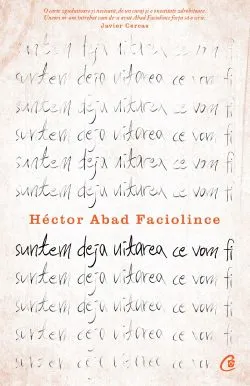 O carte zguduitoare și necesară, de un curaj și o onestitate zdrobitoare.
Uneori m-am întrebat cum de a avut Abad Faciolince forța s-o scrie.
Javier Cercas
suntem deja uitarea ce vom fi
suntem deja uitarea ce vom fi
suntem deja uitarea ce vom fi
suntem deja uitarea ce vom fi
suntem deja uitarea ce vom fi
suntem deja uitarea ce vom fi
Héctor Abad Faciolince
suntem deja uitarea ce vom fi
suntem deja uitarea ce vom fi
suntem deja uitarea ce vom fi
suntem deja uitarea ce vom fi
suntem deja uitarea ce vom fi